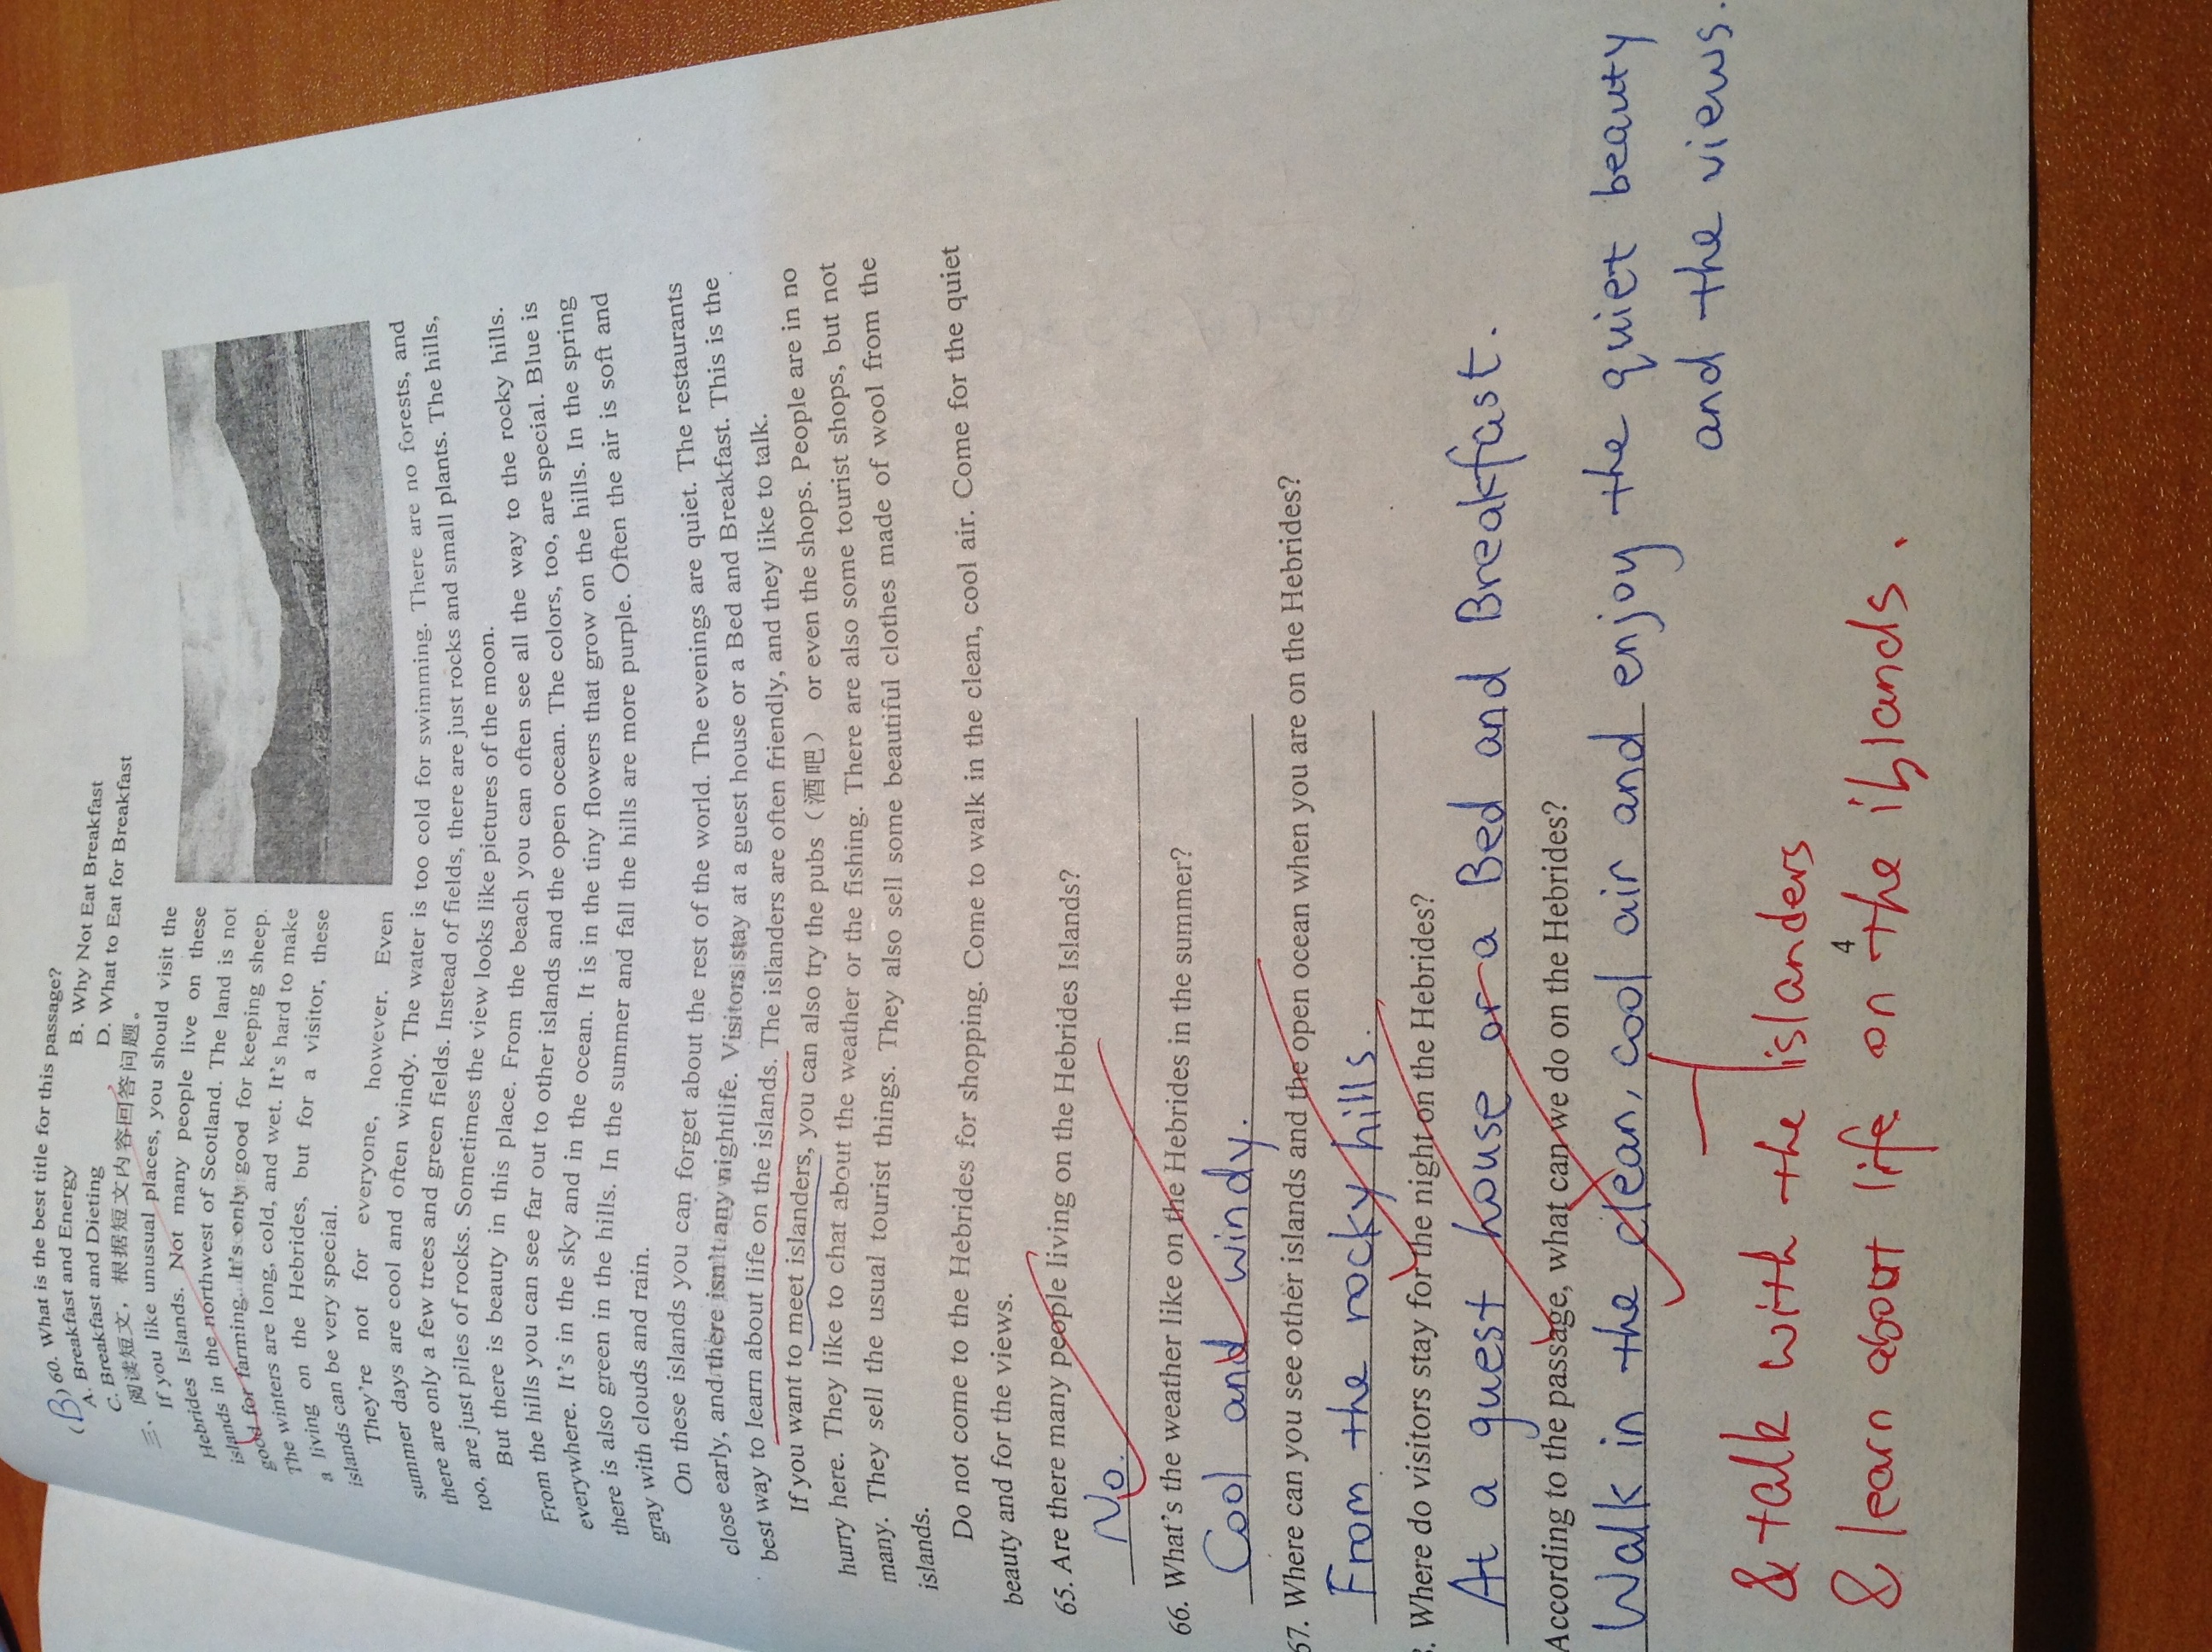 (B) 60. What is the best title for this passage?
A. Breakfast and Energy B. Why Not Eat Breakfast
C. Breakfast and Dieting D. What to Eat for Breakfast
三、阅读短文，根据短文内容回答问题。
If you like unusual places, you should visit the
Hebrides Islands. Not many people live on these
islands in the northwest of Scotland. The land is not
good for farming. It's only good for keeping sheep.
The winters are long, cold, and wet. It's hard to make
a living on the Hebrides, but for a visitor, these
islands can be very special.
They're not for everyone, however. Even
summer days are cool and often windy. The water is too cold for swimming. There are no forests, and
there are only a few trees and green fields. Instead of fields, there are just rocks and small plants. The hills,
too, are just piles of rocks. Sometimes the view looks like pictures of the moon.
But there is beauty in this place. From the beach you can often see all the way to the rocky hills.
From the hills you can see far out to other islands and the open ocean. The colors, too, are special. Blue is
everywhere. It's in the sky and in the ocean. It is in the tiny flowers that grow on the hills. In the spring
there is also green in the hills. In the summer and fall the hills are more purple. Often the air is soft and
gray with clouds and rain.
On these islands you can forget about the rest of the world. The evenings are quiet. The restaurants
close early, and there isn't any nightlife. Visitors stay at a guest house or a Bed and Breakfast. This is the
best way to learn about life on the islands. The islanders are often friendly, and they like to talk.
If you want to meet islanders, you can also try the pubs（酒吧） or even the shops. People are in no
hurry here. They like to chat about the weather or the fishing. There are also some tourist shops, but not
many. They sell the usual tourist things. They also sell some beautiful clothes made of wool from the
islands.
Do not come to the Hebrides for shopping. Come to walk in the clean, cool air. Come for the quiet
beauty and for the views.
65. Are there many people living on the Hebrides Islands?
No.
66. What's the weather like on the Hebrides in the summer?
Cool and windy.
67. Where can you see other islands and the open ocean when you are on the Hebrides?
From the rocky hills.
. Where do visitors stay for the night on the Hebrides?
At a guest house or a Bed and Breakfast.
According to the passage, what can we do on the Hebrides?
Walk in the clean, cool air and enjoy the quiet beauty
and the views.
& talk with the islanders
& learn about life on the islands.
4